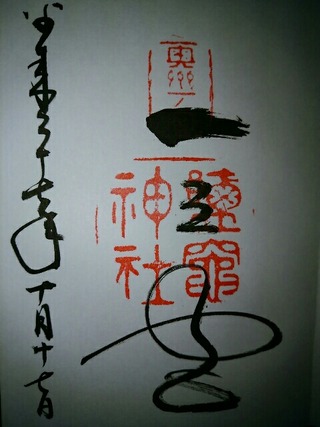 奥州一
一之宮
鹽竈
神社
平成二十七年十月十七日